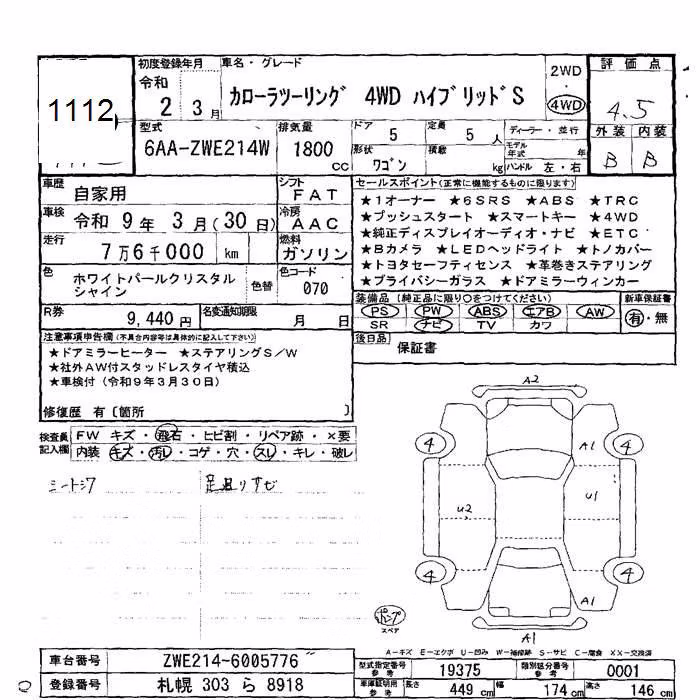 1112
初度登録年月
令和
2 3月
車名・グレード
カローラツーリング 4WD ハイブリッドS
2WD
・
4WD
評価点
4.5
型式
6AA-ZWE214W
排気量
1800
CC
ドア
5
定員
5人
ディーラー・並行
形状
ワゴン
積載
kg
モデル年式
年
ハンドル 左・右
外装 内装
B B
車歴
自家用
シフト
FAT
車検
令和 9年 3月(30日)
冷房
AAC
走行
7万6千000 km
燃料
ガソリン
色
ホワイトパールクリスタル
シャイン
色替
色コード
070
R券
9,440円
名変通知期限
月 日
セールスポイント(正常に機能するものに限ります)
★1オーナー ★6SRS ★ABS ★TRC
★プッシュスタート ★スマートキー ★4WD
★純正ディスプレイオーディオ・ナビ ★ETC
★Bカメラ ★LEDヘッドライト ★トノカバー
★トヨタセーフティセンス ★革巻きステアリング
★プライバシーガラス ★ドアミラーウィンカー
装備品(純正品に限り○をつけてください)
PS PW ABS エアB AW
SR ナビ TV カワ
新車保証書
有・無
後日品
保証書
注意事項申告欄(不具合内容等は具体的に記入して下さい)
★ドアミラーヒーター ★ステアリングS/W
★社外AW付スタッドレスタイヤ積込
★車検付(令和9年3月30日)
修復歴 有〔箇所 〕
検査員
記入欄
FW キズ・飛石・ヒビ割・リペア跡・×要
内装 キズ・汚レ・コゲ・穴・スレ・キレ・破レ
シートシワ
足廻りサビ
A2
4
4
A1
U2
U1
4
4
A1
A1
スペア
A-キズ E-エクボ U-凹み W-補修跡 S-サビ C-腐食 XX-交換済
車台番号
ZWE214-6005776
登録番号
札幌 303 ら 8918
型式指定番号
参考
19375
類別区分番号
参考
0001
車庫証明用
参考
長さ
449 cm
幅
174 cm
高さ
146 cm